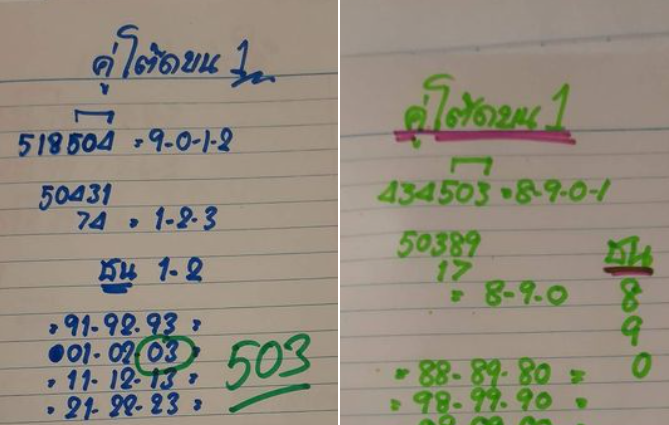 คู่โต๊ดบน 1
518504 = 9-0-1-2
50431
74 = 1-2-3
ชน 1-2
= 91-92-93 =
01-02-03 =
= 11-12-13 =
= 21-22-23 =
503
คู่โต๊ดบน 1
434503 = 8-9-0-1
50389
17
= 8-9-0
ชน
8
9
0
= 88-89-80 =
= 98-99-90 =